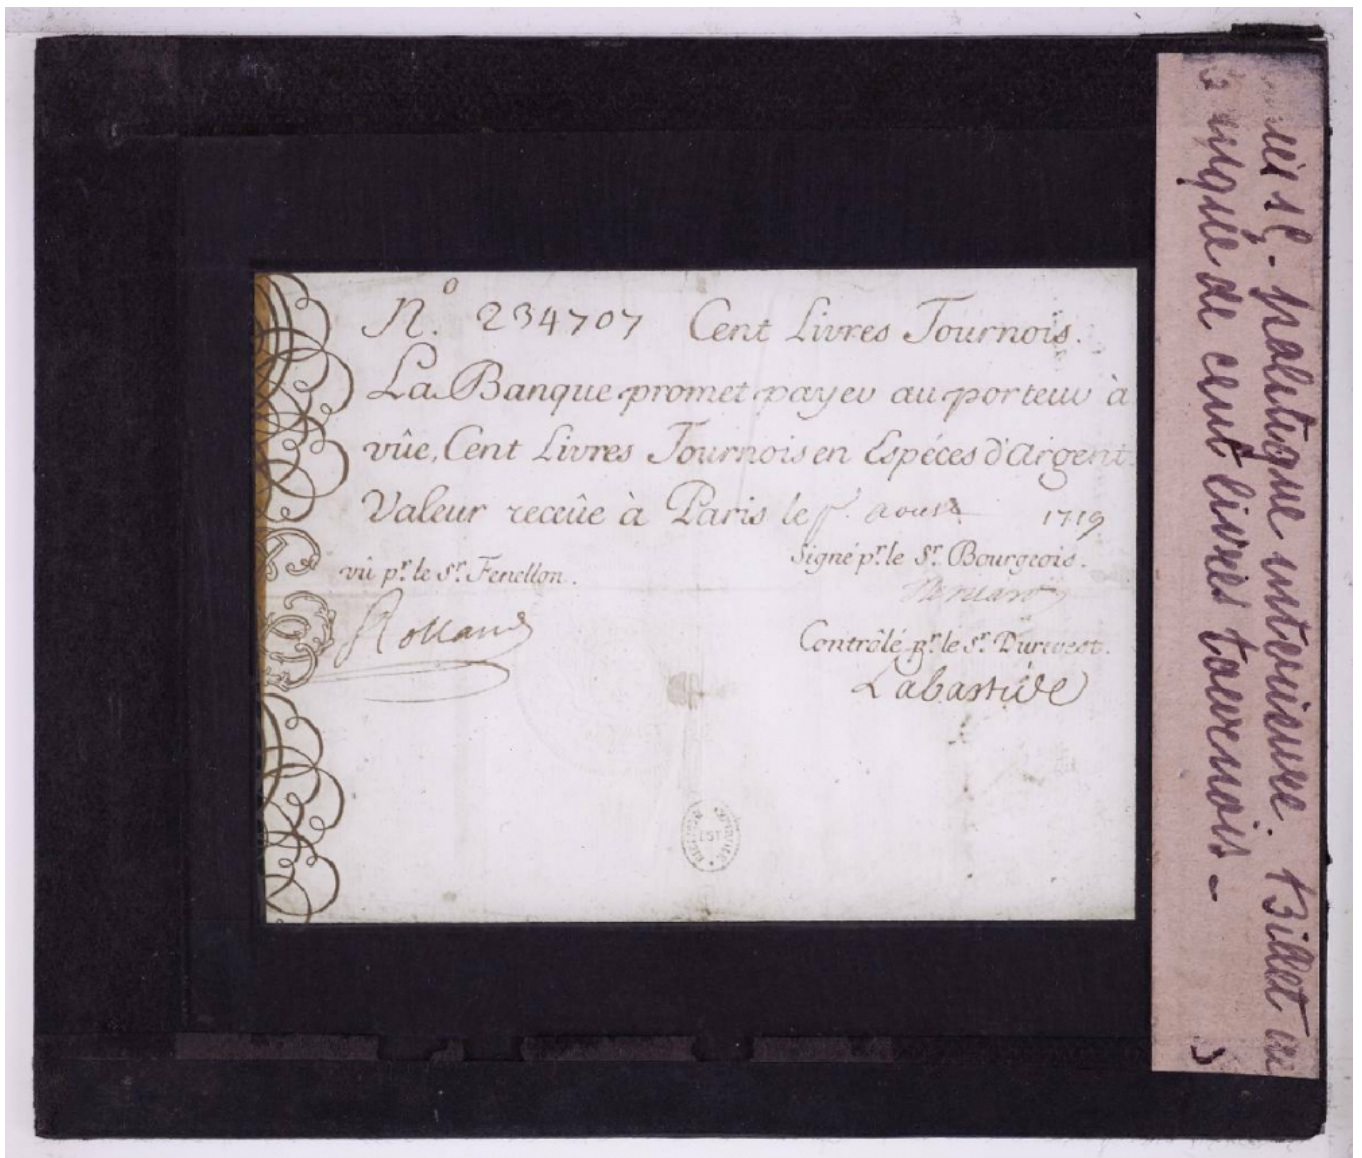 N.º 234707 Cent Livres Tournois.
La Banque promet payer au porteur à
vûe, Cent Livres Tournois en Espéces d'Argent
Valeur receûe à Paris le aoust 1719
vû pr. le Sr. Fenellon.
Signé pr. le Sr. Bourgeois.
Rolland
Contrôlé pr. le Sr. Durevest.
Labastide
politique intérieure. Billet de
de cent livres tournois -